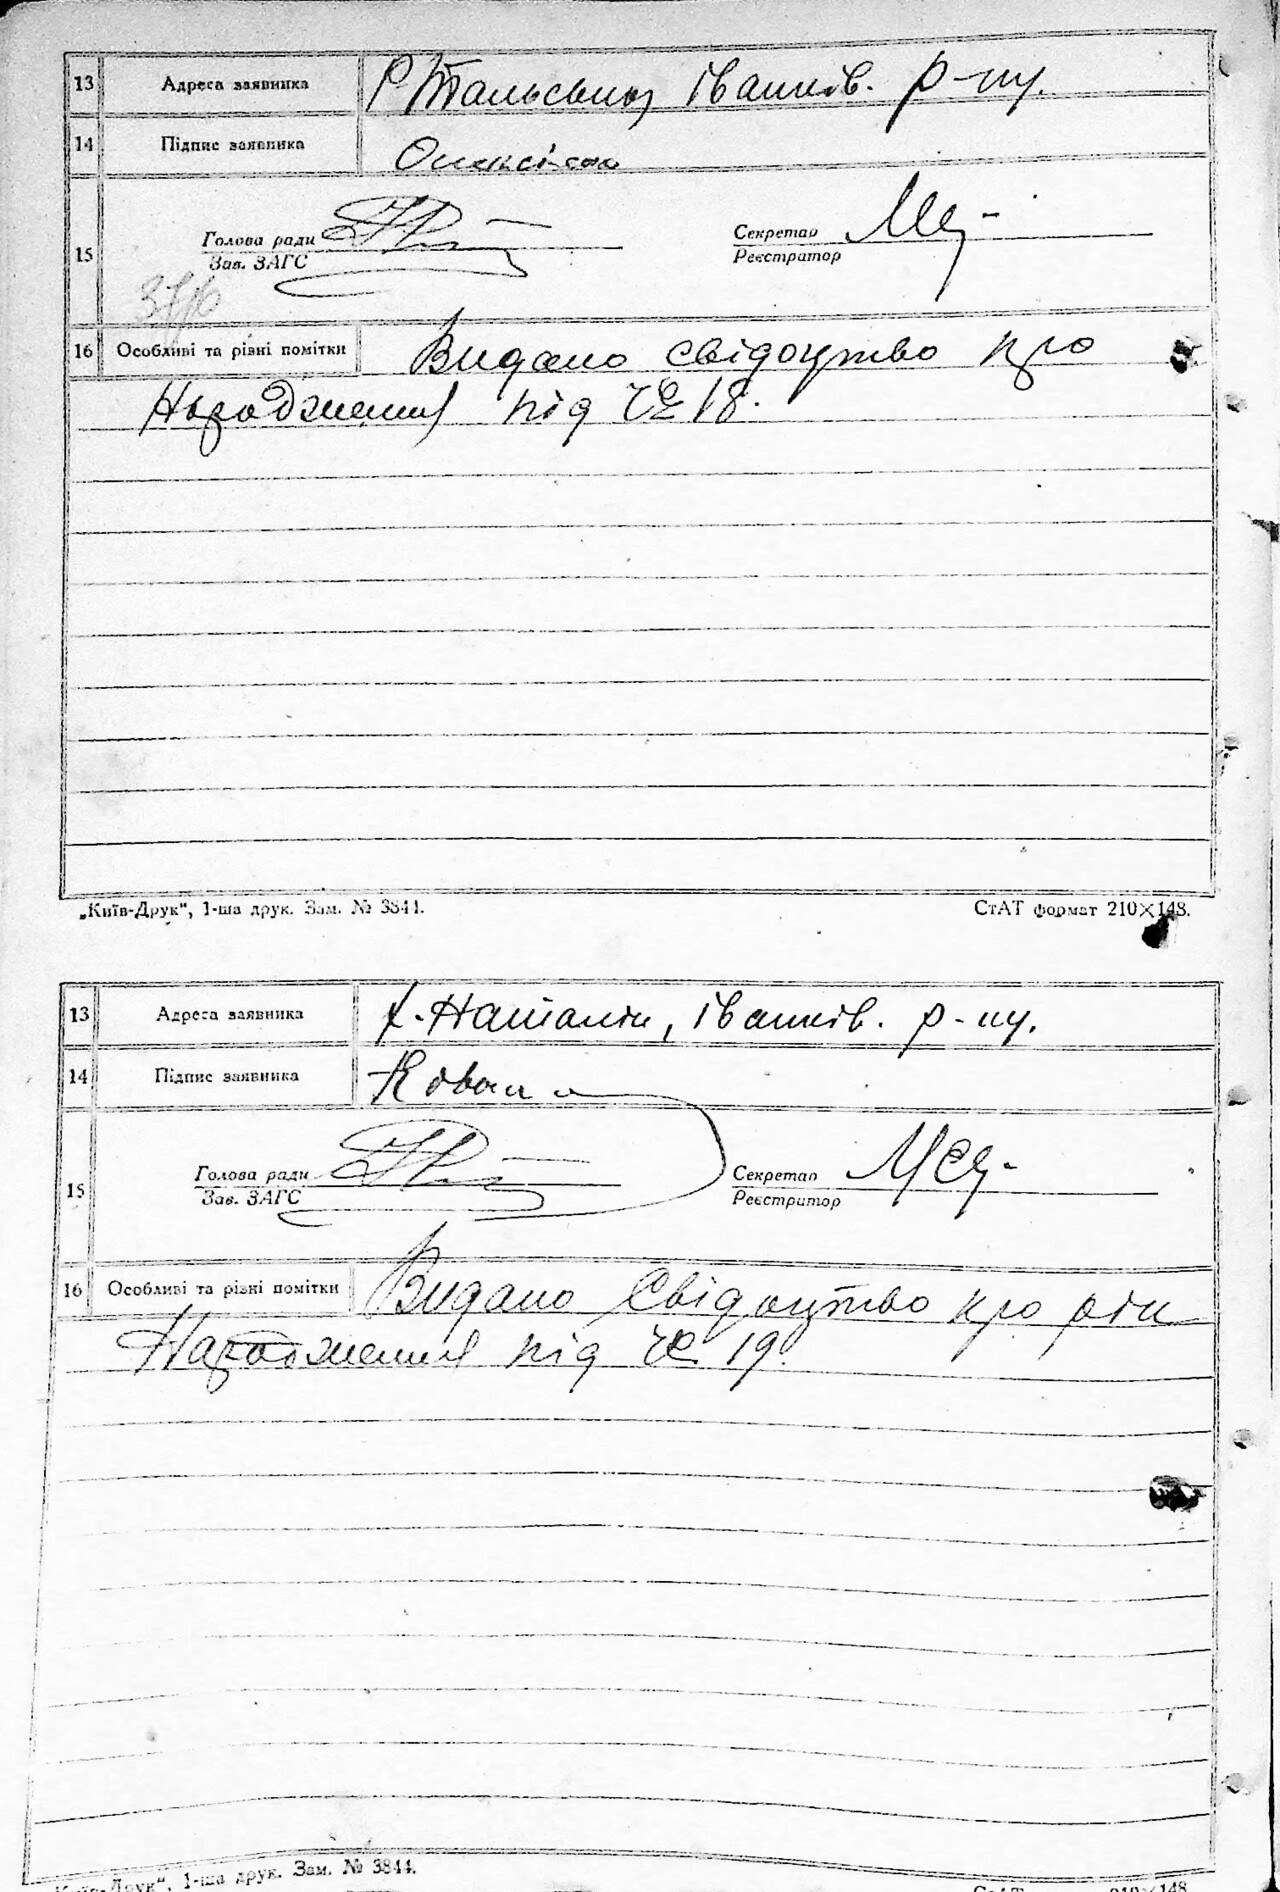 13 Адреса заявника Іванків. р-ну.
14 Підпис заявника
15 Голова ради Секретар
Зав. ЗАГС Реєстратор
37/6
16 Особливі та різні помітки Видано свідоцтво про
Народження під № 18.
„Київ-Друк", 1-ша друк. Зам. № 3844. СтАТ формат 210×148.
13 Адреса заявника х. Наталін, Іванків. р-ну.
14 Підпис заявника
15 Голова ради Секретар
Зав. ЗАГС Реєстратор
16 Особливі та різні помітки Видано Свідоцтво про
Народження під № 19.
„Київ-Друк", 1-ша друк. Зам. № 3844. СтАТ 210×148